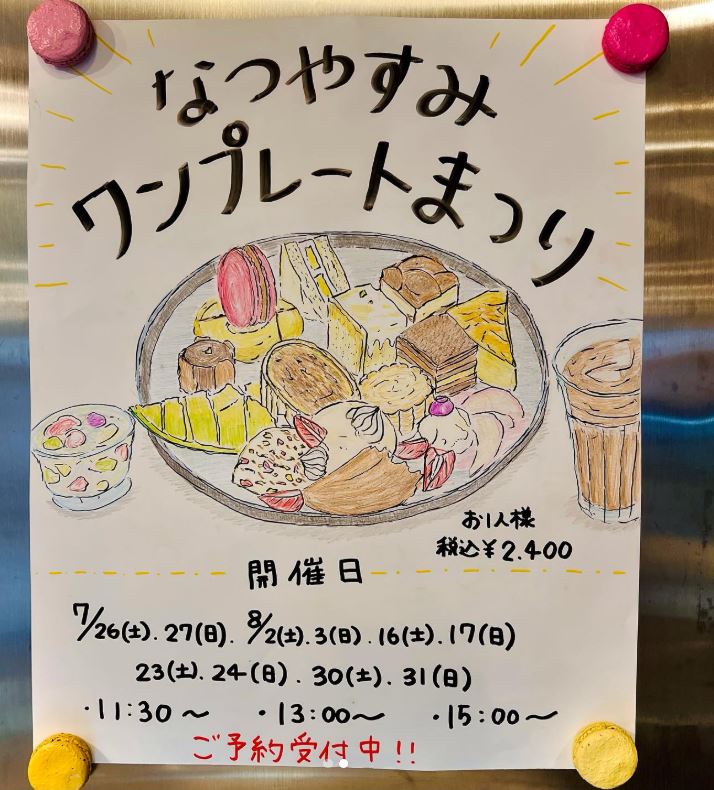 なつやすみ
ワンプレートまつり
お1人様
税込¥2.400
開催日
7/26(土).27(日).8/2(土).3(日).16(土).17(日)
23(土).24(日).30(土).31(日)
・11:30〜 ・13:00〜 ・15:00〜
ご予約受付中!!